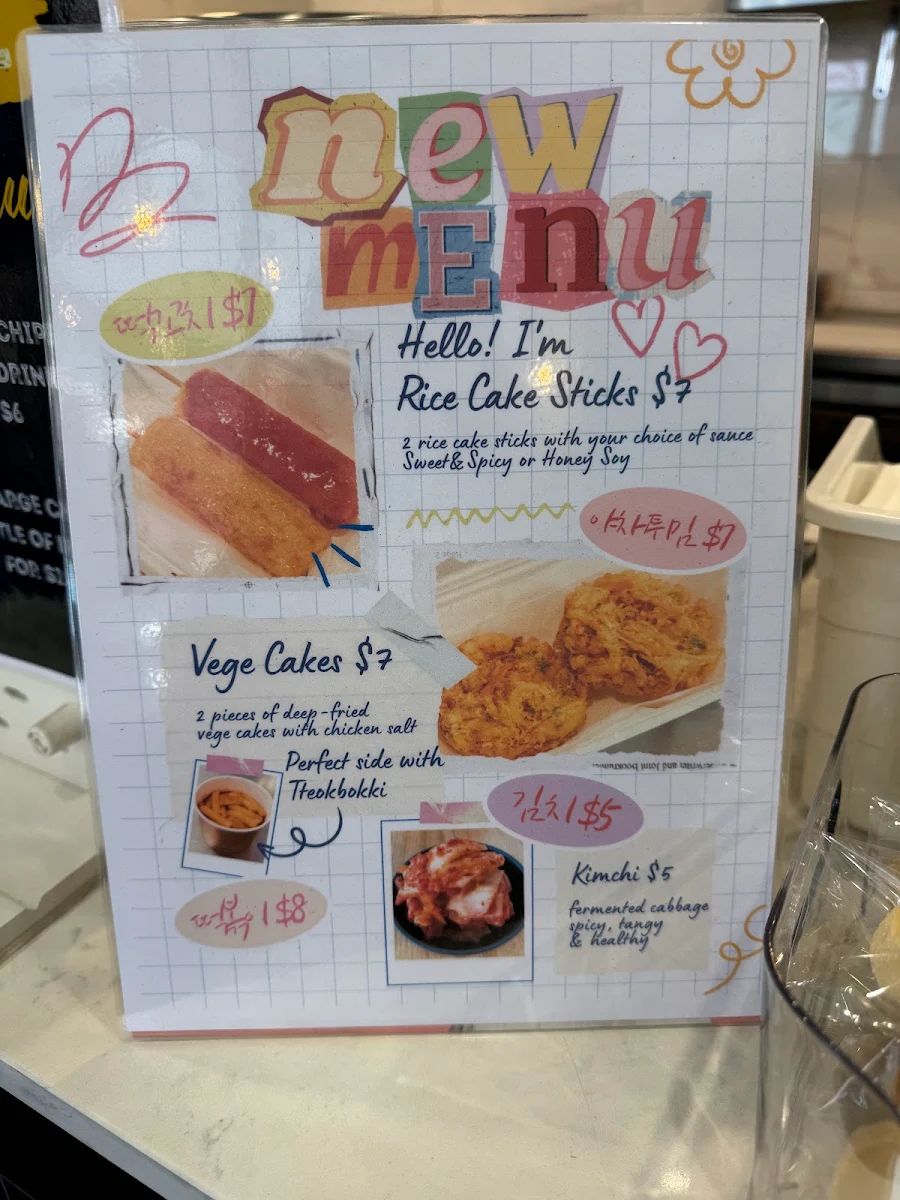 new
mEnu
떡꼬치 $7
Hello! I'm
Rice Cake Sticks $7
2 rice cake sticks with your choice of sauce
Sweet& Spicy or Honey Soy
야채튀김 $7
Vege Cakes $7
2 pieces of deep-fried
vege cakes with chicken salt
Perfect side with
Tteokbokki
김치 $5
Kimchi $5
fermented cabbage
spicy, tangy
& healthy
떡볶이 $8
CHIP
DRIN
$6
ARGE C
TLE OF
FOR $1